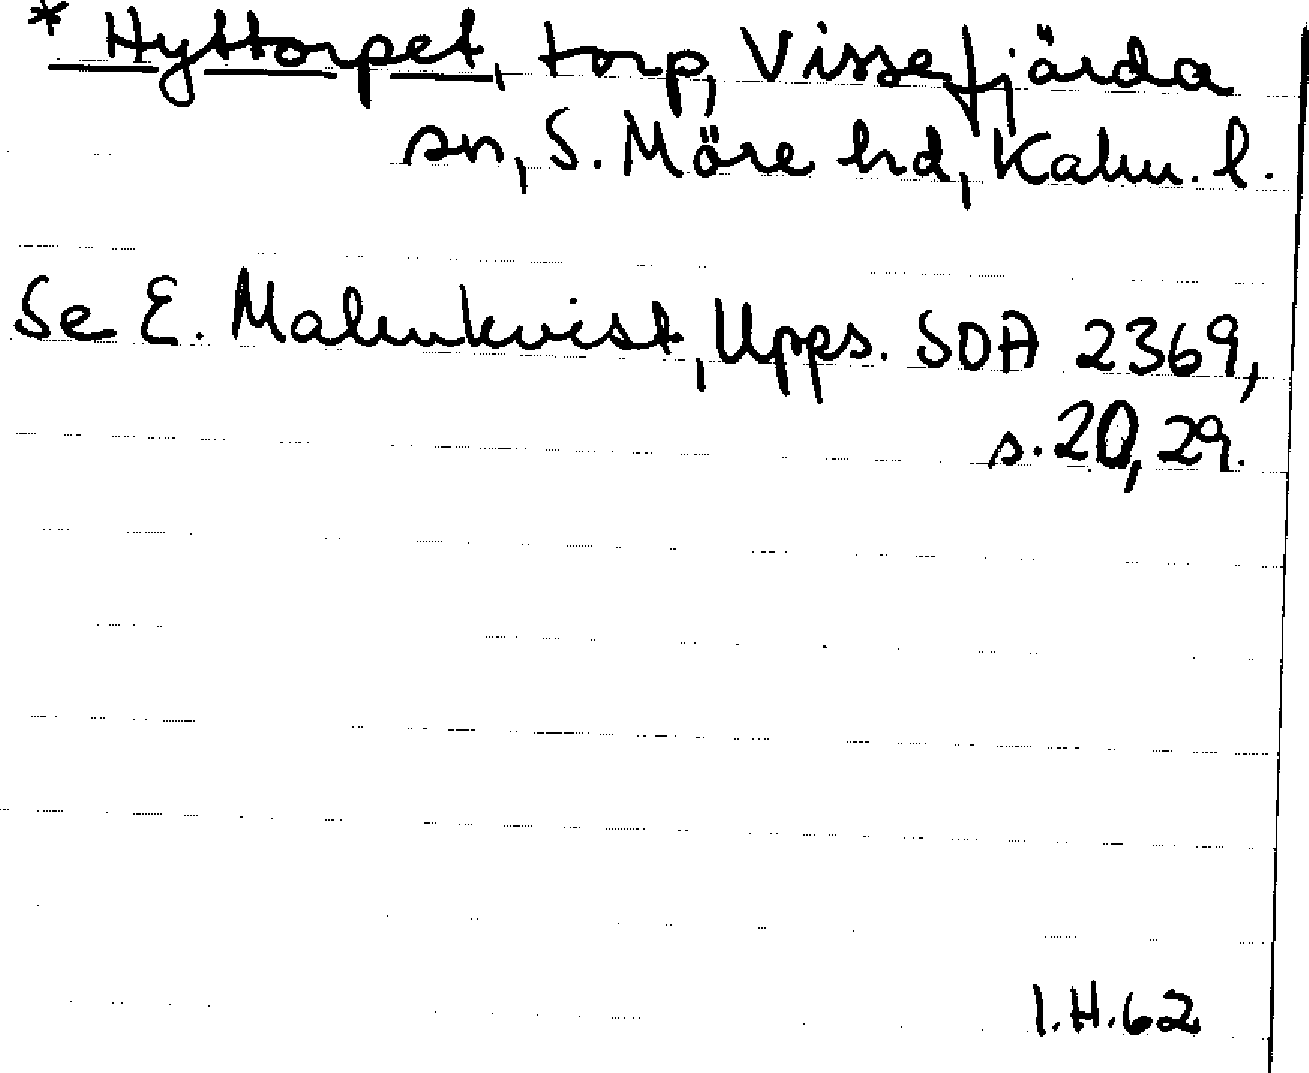 * Hyttorpet, torp, Vissefjärda
sn, S. Möre hd, Kalm. l.
Se E. Malmkvist, Upps. SOA 2369,
s. 20, 29.
I.H.62